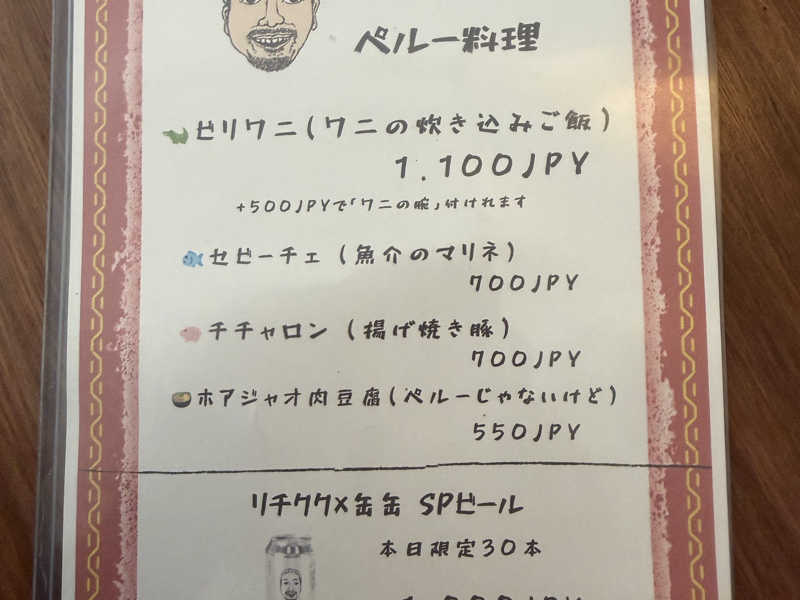 ペルー料理
ビリワニ(ワニの炊き込みご飯)
1,100JPY
+500JPYで「ワニの腕」付けれます
セビーチェ(魚介のマリネ)
700JPY
チチャロン(揚げ焼き豚)
700JPY
ホアジャオ肉豆腐(ペルーじゃないけど)
550JPY
リチククx缶缶 SPビール
本日限定30本